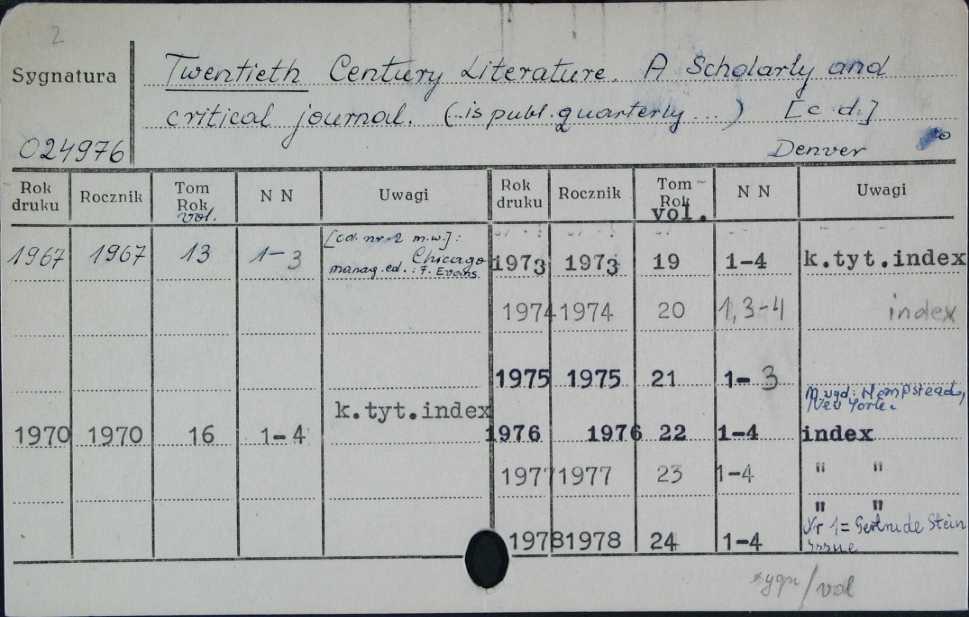 2
Sygnatura
Twentieth Century Literature. A Scholarly and
critical journal. (..is publ. quarterly ...) [c.d.]
024976
Denver
Rok druku Rocznik Tom Rok vol. N N Uwagi
1967 1967 13 1-3 [cd. nr 2 m.w.]: Chicago
manag. ed.: F. Evans.
k.tyt.index
1970 1970 16 1-4
Rok druku Rocznik Tom Rok vol. N N Uwagi
1973 1973 19 1-4 k.tyt.index
1974 1974 20 1,3-4 index
1975 1975 21 1-3
M. wyd.: Hempstead,
New York.
1976 1976 22 1-4 index
1977 1977 23 1-4 " "
" "
1978 1978 24 1-4 Nr 1= Gertrude Stein
Issue
sygn/vol